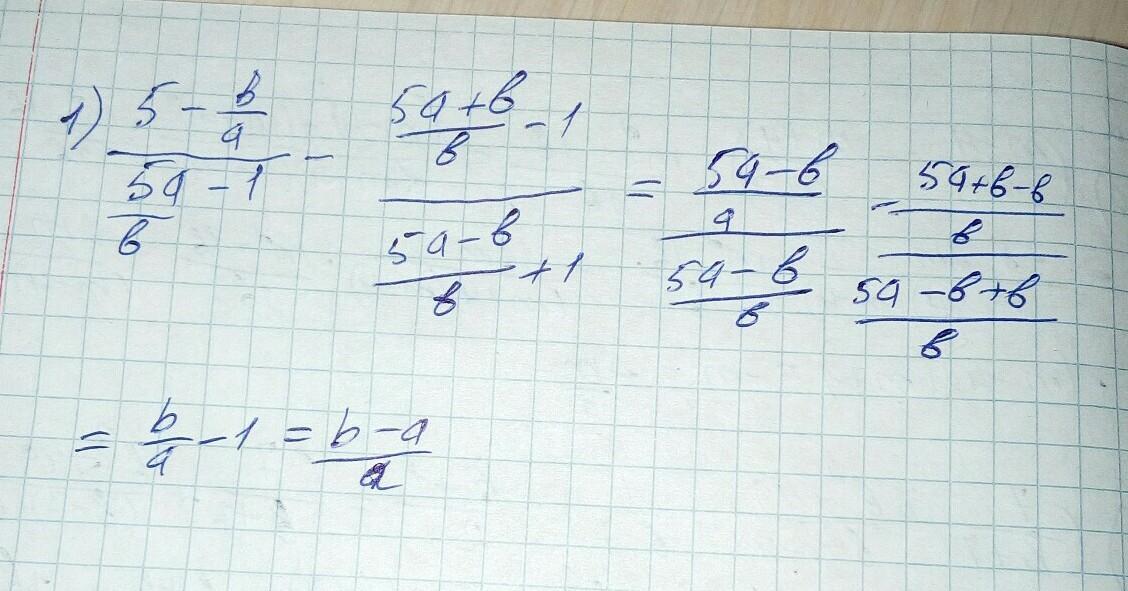 1) (5 - b/a)/(5a/b - 1) - ((5a+b)/b - 1)/((5a-b)/b + 1) = ((5a-b)/a)/((5a-b)/b) - ((5a+b-b)/b)/((5a-b+b)/b)
= b/a - 1 = (b-a)/a